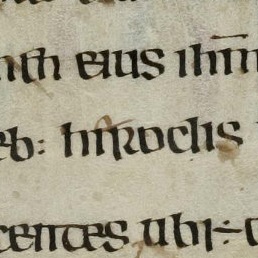 eius ih̅m̅
eb: hirodis
centes ubi ÷